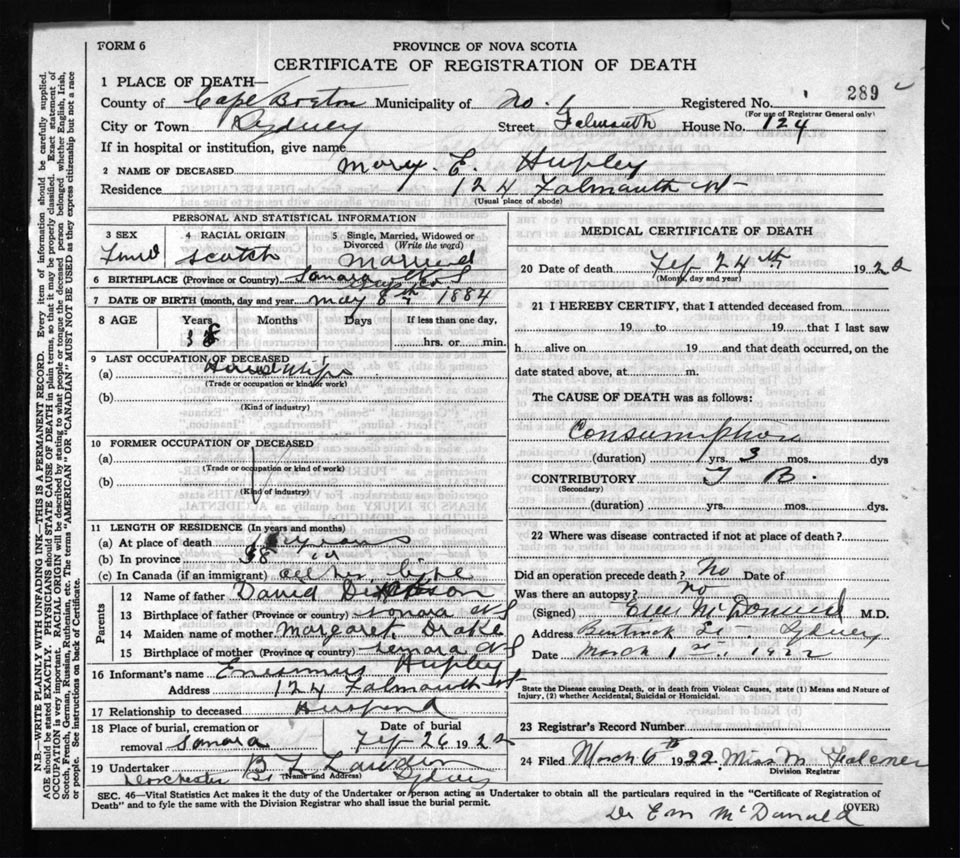 FORM 6
PROVINCE OF NOVA SCOTIA
CERTIFICATE OF REGISTRATION OF DEATH
289
1 PLACE OF DEATH—
County of Cape Breton Municipality of No. 1 Registered No.
(For use of Registrar General only)
City or Town Sydney Street Falmouth House No. 124
If in hospital or institution, give name
2 NAME OF DECEASED Mary. E. Hupley
Residence 124 Falmouth St
(Usual place of abode)
PERSONAL AND STATISTICAL INFORMATION
3 SEX 4 RACIAL ORIGIN 5 Single, Married, Widowed or Divorced (Write the word)
Scotch Married
6 BIRTHPLACE (Province or Country) Sonara N S
Guys Co
7 DATE OF BIRTH (month, day and year) May 8th 1884
8 AGE Years Months Days If less than one day,
38 hrs. or min.
9 LAST OCCUPATION OF DECEASED
(a) House Wife
(Trade or occupation or kind of work)
(b)
(Kind of industry)
10 FORMER OCCUPATION OF DECEASED
(a)
(Trade or occupation or kind of work)
(b)
(Kind of industry)
11 LENGTH OF RESIDENCE (In years and months)
(a) At place of death years
(b) In province 38
(c) In Canada (if an immigrant) all her life
Parents
12 Name of father David Dickson
13 Birthplace of father (Province or country) Sonara NS
14 Maiden name of mother Margaret Drake
15 Birthplace of mother (Province or country) Sonara NS
16 Informant's name Enismus Hupley
Address 124 Falmouth St
17 Relationship to deceased Husband
18 Place of burial, cremation or removal Sonara Date of burial Feb 26 1922
19 Undertaker B L Lawder
(Name and Address)
Dorchester St Sydney
MEDICAL CERTIFICATE OF DEATH
20 Date of death Feb 24th 1922
(Month, day and year)
21 I HEREBY CERTIFY, that I attended deceased from
19 to 19 that I last saw
h alive on 19 and that death occurred, on the
date stated above, at m.
The CAUSE OF DEATH was as follows:
Consumption
(duration) yrs. 3 mos. dys
CONTRIBUTORY T B.
(Secondary)
(duration) yrs. mos. dys.
22 Where was disease contracted if not at place of death?
Did an operation precede death? No Date of
Was there an autopsy? No
(Signed) McDonald M.D.
Address Bentinck St., Sydney
Date March 1st., 1922
State the Disease causing Death, or in death from Violent Causes, state (1) Means and Nature of Injury, (2) whether Accidental, Suicidal or Homicidal.
23 Registrar's Record Number
24 Filed March 6th 1922. Miss M Falconer
Division Registrar
SEC. 46—Vital Statistics Act makes it the duty of the Undertaker or person acting as Undertaker to obtain all the particulars required in the "Certificate of Registration of
Death" and to fyle the same with the Division Registrar who shall issue the burial permit.
(OVER)
Dr E M McDonald
N.B.—WRITE PLAINLY WITH UNFADING INK—THIS IS A PERMANENT RECORD. Every item of information should be carefully supplied.
AGE should be stated EXACTLY. PHYSICIANS should STATE CAUSE OF DEATH in plain terms, so that it may be properly classified. Exact statement of
OCCUPATION is very important. RACIAL ORIGIN will be described by stating to what people or tongue the deceased person belonged whether English, Irish,
Scotch, French, German, Russian, Ruthenian, etc. The terms "AMERICAN" OR "CANADIAN" MUST NOT BE USED as they express citizenship but not a race
or people. See instructions on back of Certificate.